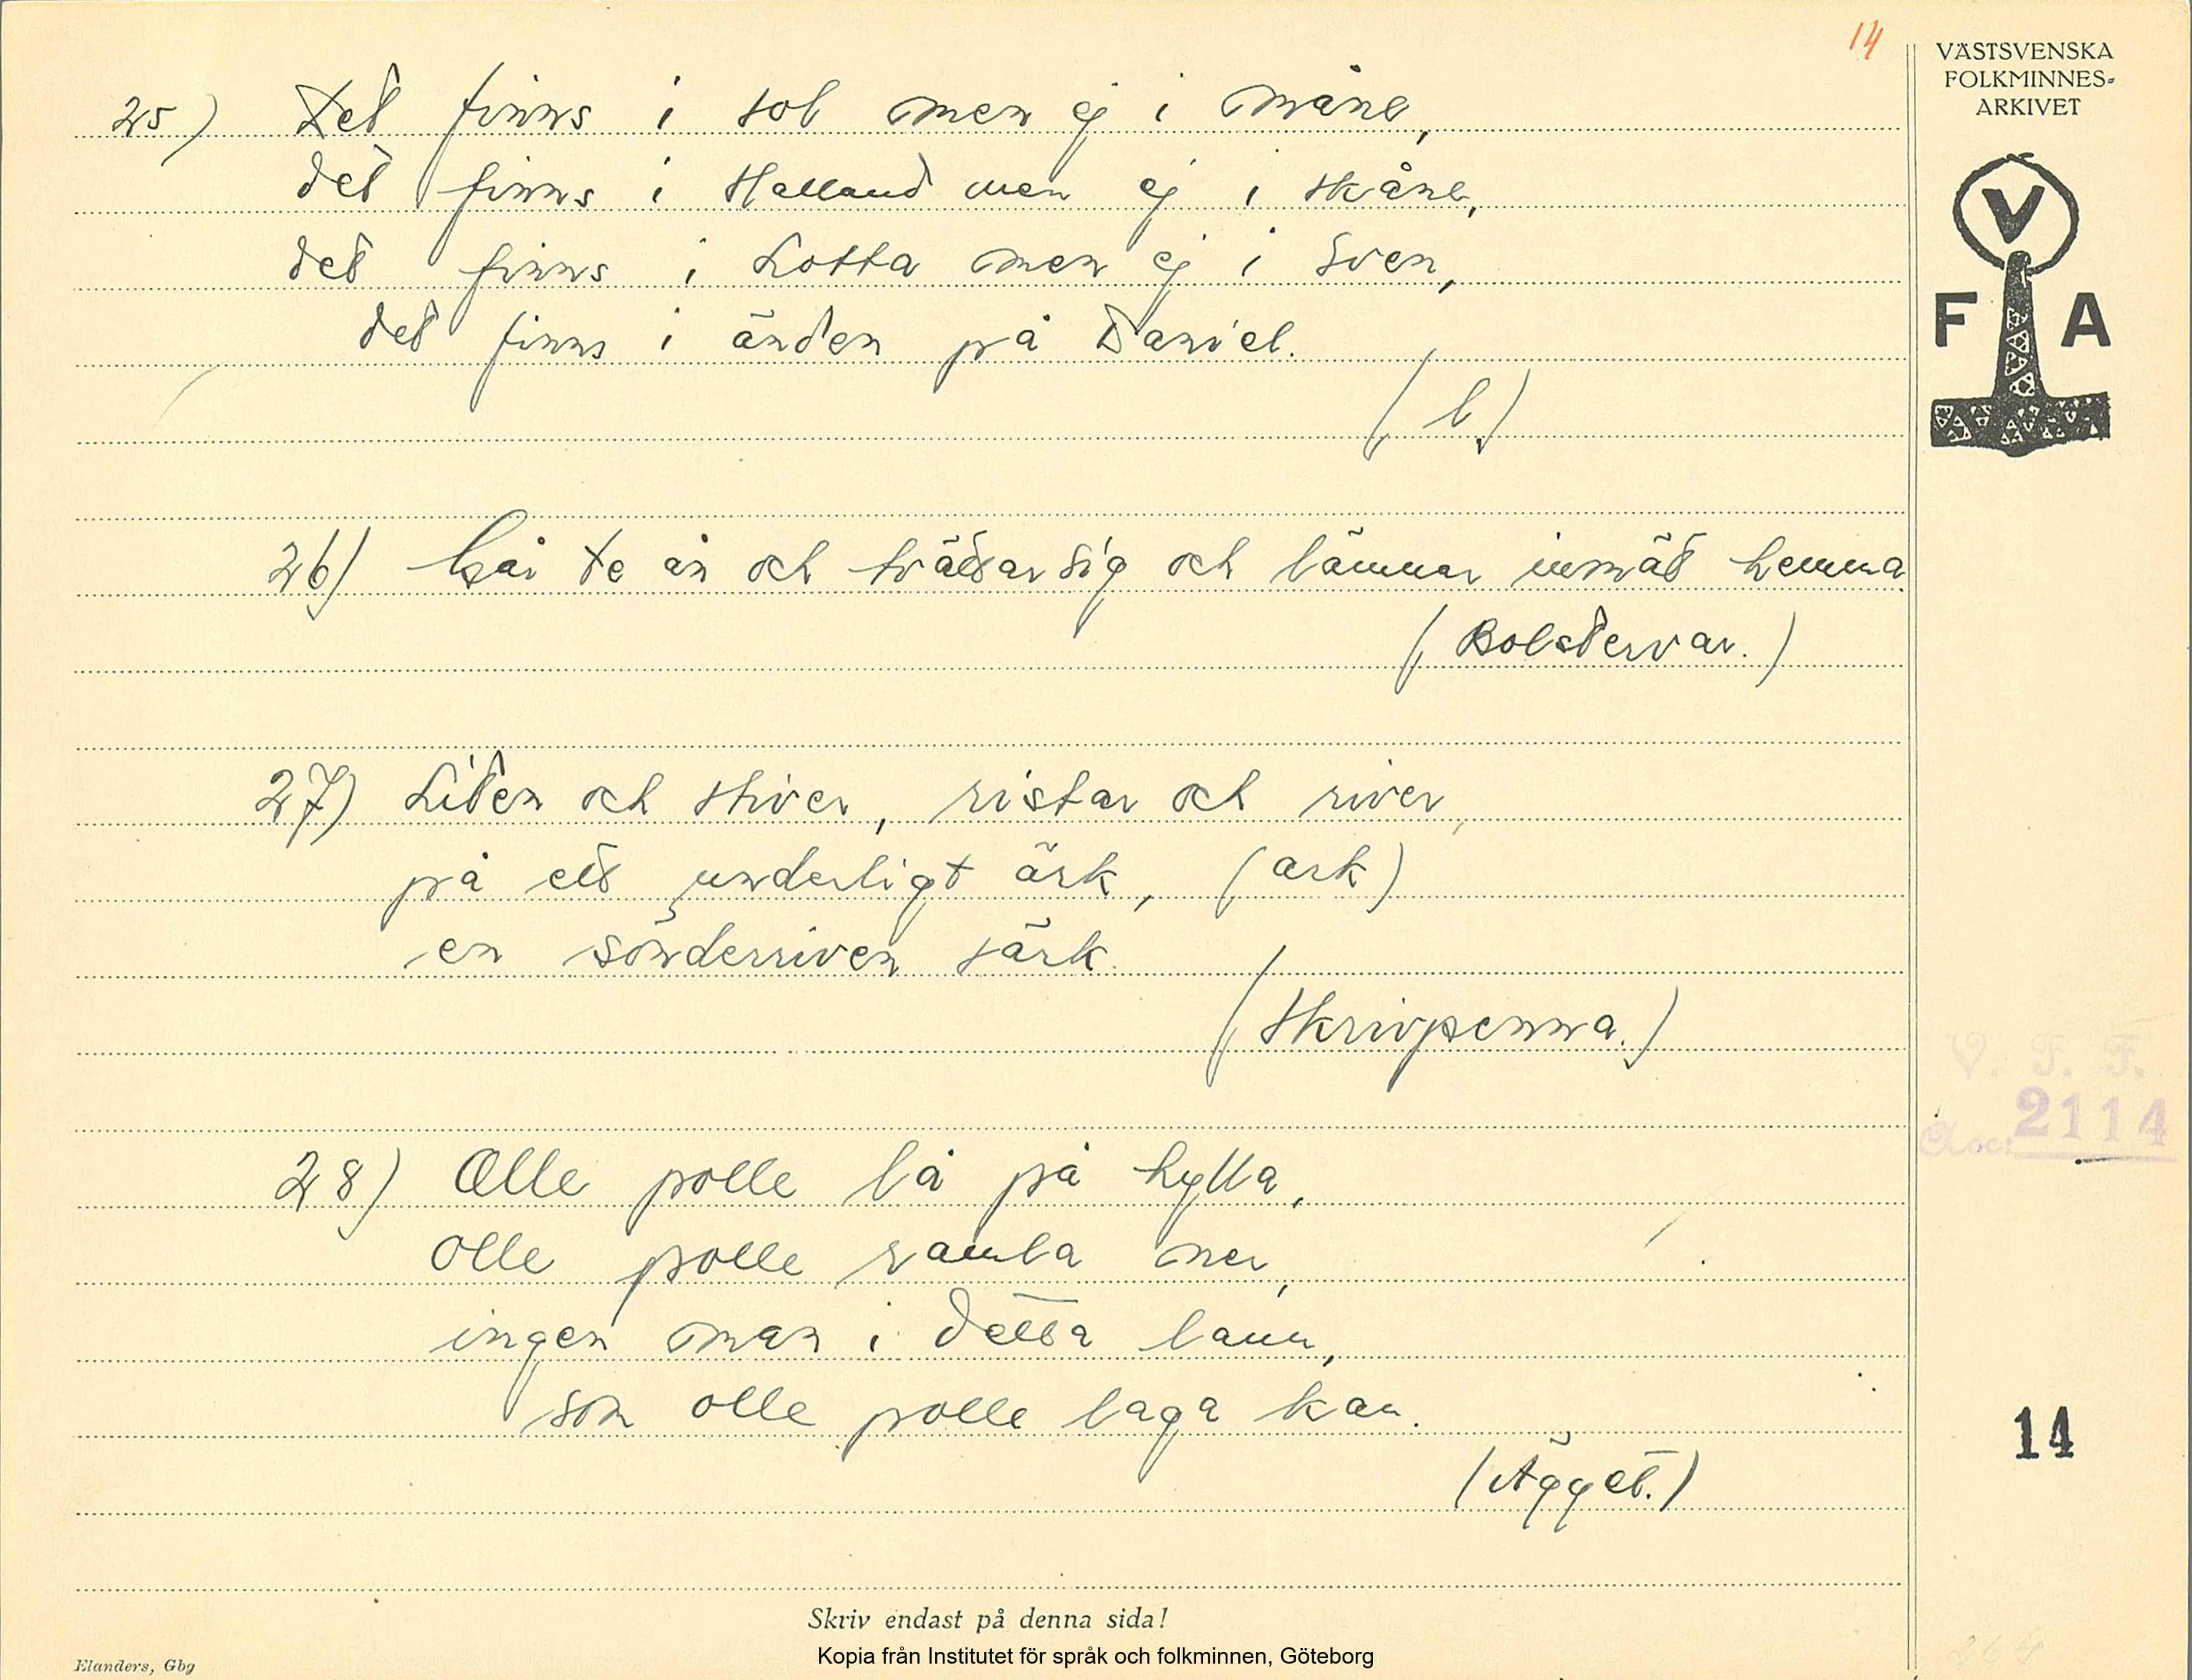 14
VÄSTSVENSKA
FOLKMINNES-
ARKIVET
V
F A
25) Det finns i sol men ej i måne,
det finns i Halland men ej i Skåne,
det finns i Lotta men ej i Sven,
det finns i änden på Daniel.
(l.)
26) Går te ån och tvättar sig och lämnar inmät hemma.
(Bolstervar.)
27) Liten och stiver, ristar och river,
på ett underligt ärk, (ark)
en sönderriven särk.
(Skrivpenna.)
28) Olle polle lå på hylla,
olle polle ramla ner,
ingen man i detta lann,
som olle polle laga kan.
(Ägget.)
V. F. F.
Acc: 2114
14
Skriv endast på denna sida!
Kopia från Institutet för språk och folkminnen, Göteborg
Elanders, Gbg